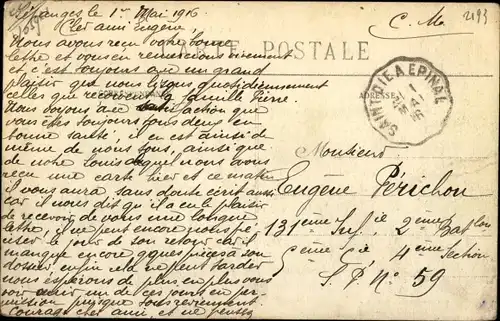 le 1er Mai 1916
Cher ami Eugène,
C. M.
2193
CARTE POSTALE
Nous avons reçu votre bonne
lettre et vous en remercions vivement
et c'est toujours avec un grand
plaisir que nous lisons quotidiennement
celles que reçoivent la famille Pierre.
Nous voyons avec satisfaction que
vous êtes toujours tous deux en
bonne santé, il en est ainsi de
même de nous tous, ainsi que
de notre Louis duquel nous avons
reçu une carte hier et ce matin
il vous aura sans doute écrit aussi
car il nous dit qu'il a eu le plaisir
de recevoir de vous une longue
lettre, il ne peut encore nous pré
ciser le jour de son retour car il
manque encore qques pièces à son
dossier, enfin cela ne peut tarder
nous espérons de plus en plus vous
voir venir un de ces jours en per
mission puisque tous reviennent.
Courage cher ami, et ne pensez
ADRESSE
SAINT-DIE A EPINAL
1
MAI
16
Monsieur
Eugène Périchon
131ème Inf. ie 2ème Bat lon
5ème Cie 4ème Section
S. P. N° 59